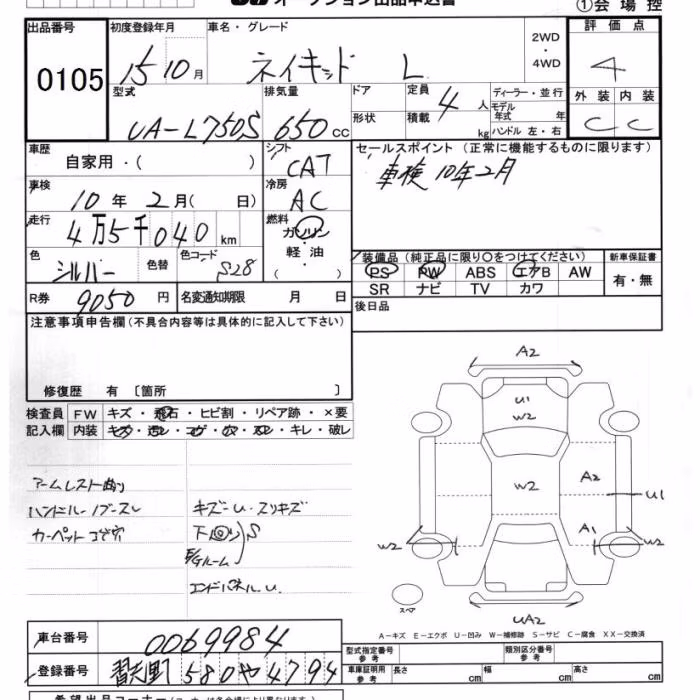 オークション出品申込書
①会場控
出品番号 初度登録年月 車名・グレード 評価点
0105 15 10月 ネイキッド L 2WD・4WD 4
型式 排気量 ドア 定員 ディーラー・並行 外装 内装
UA-L750S 650cc 形状 積載 4人 kg モデル年式 年 ハンドル 左・右 C C
車歴 自家用・( ) シフト CAT セールスポイント (正常に機能するものに限ります)
車検 10年2月( 日) 冷房 AC 車検10年2月
走行 4万5千040km 燃料 ガソリン
色 シルバー 色替 色コード S28 軽・油 ( )
装備品 (純正品に限り○をつけてください) 新車保証書
PS PW ABS エアB AW 有・無
SR ナビ TV カワ
R券 9050円 名変通知期限 月 日 後日品
注意事項申告欄 (不具合内容等は具体的に記入して下さい)
修復歴 有 〔箇所 〕
検査員 FW キズ・飛石・ヒビ割・リペア跡・×要
記入欄 内装 キズ・汚レ・コゲ・穴・スレ・キレ・破レ
アームレスト
ハンドル キズ・U・スリキズ
カーペット コゲ穴 下回り S
E/Gルーム
エンドパネルU.
A2
U1
W2
W2
A2
U1
A1
W2
W2
スペア
UA2
A-キズ E-エクボ U-凹み W-補修跡 S-サビ C-腐食 XX-交換済
車台番号 0069984
登録番号 習志野580や4794
型式指定番号 参考 類別区分番号 参考
車庫証明用 参考 長さ cm 幅 cm 高さ cm
希望出品コーナー